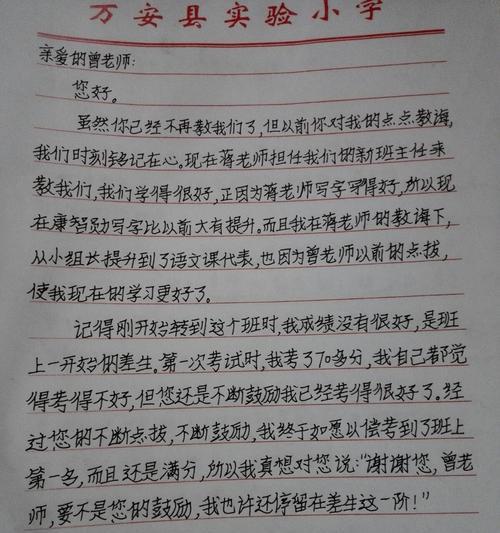 万安县实验小学
亲爱的曾老师：
您好。
虽然你已经不再教我们了，但以前你对我的点点教诲，
我们时刻铭记在心。现在蒋老师担任我们的新班主任来
教我们，我们学得很好，正因为蒋老师写字写得好，所以现
在康智勋写字比以前大有提升。而且我在蒋老师的教诲下，
从小组长提升到了语文课代表，也因为曾老师以前的点拔，
使我现在的学习更好了。
记得刚开始转到这个班时，我成绩没有很好，是班
上一开始的差生。第一次考试时，我考了70多分，我自己都觉
得考得不好，但您还是不断鼓励我已经考得很好了。经
过您的不断点拔，不断鼓励，我终于如愿以偿考到了班上
第一名，而且还是满分，所以我真想对您说：“谢谢您，曾老
师，要不是您的鼓励，我也许还停留在差生这一阶！”